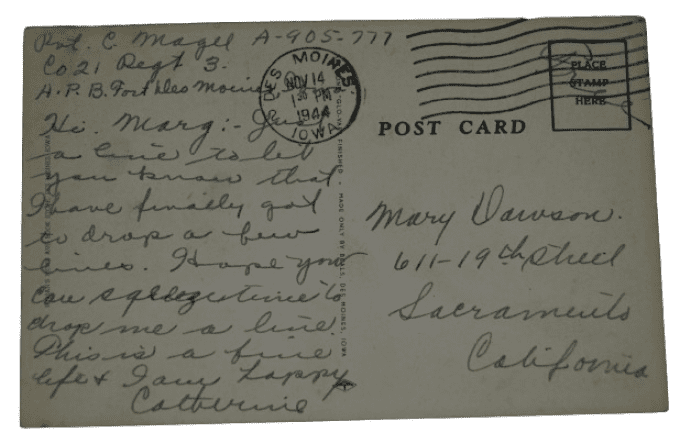 Pvt. C. Magel A-905-777
Co 21 Regt 3.
A.P.B. Fort Des Moines
DES MOINES
NOV 14
1 30 PM
1944
IOWA
PLACE
STAMP
HERE
POST CARD
Hi. Marg:- Just
a line to let
you know that
I have finally got
to drop a few
lines. Hope you
can squeeze time to
drop me a line.
This is a fine
life & I am happy
Catherine
FINISHED • MADE ONLY BY DES MOINES, IOWA
Mary Dawson.
611-19th Street
Sacramento
California